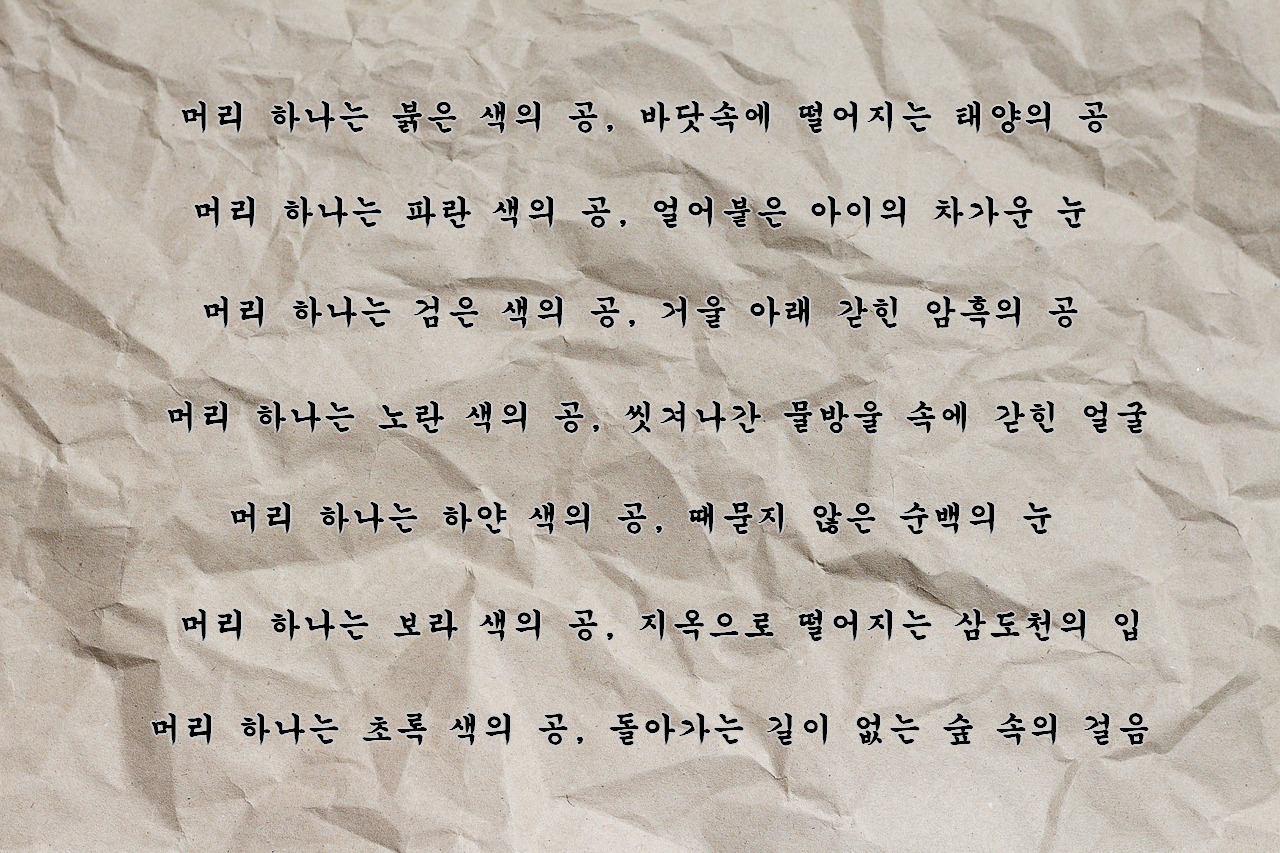 머리 하나는 붉은 색의 공, 바닷속에 떨어지는 태양의 공
머리 하나는 파란 색의 공, 얼어붙은 아이의 차가운 눈
머리 하나는 검은 색의 공, 거울 아래 갇힌 암흑의 공
머리 하나는 노란 색의 공, 씻겨나간 물방울 속에 갇힌 얼굴
머리 하나는 하얀 색의 공, 때묻지 않은 순백의 눈
머리 하나는 보라 색의 공, 지옥으로 떨어지는 삼도천의 입
머리 하나는 초록 색의 공, 돌아가는 길이 없는 숲 속의 걸음